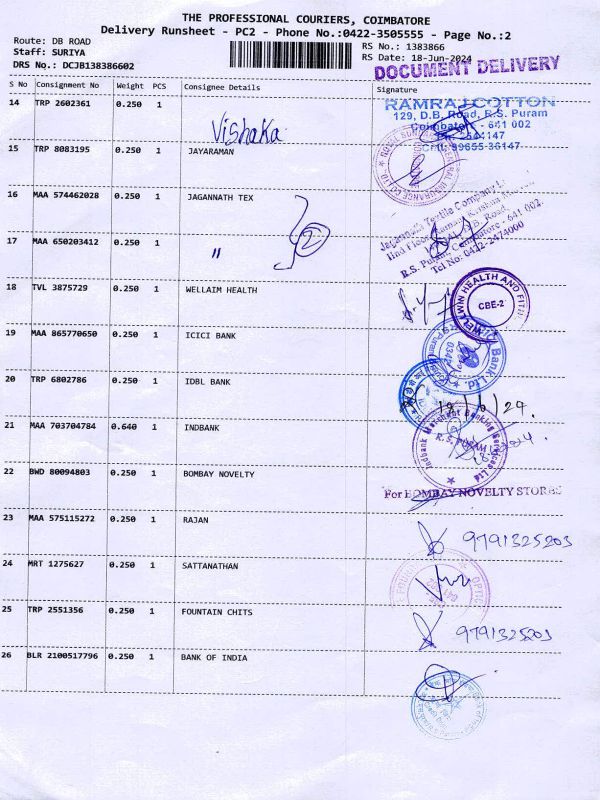 THE PROFESSIONAL COURIERS, COIMBATORE
Delivery Runsheet - PC2 - Phone No.:0422-3505555 - Page No.:2
Route: DB ROAD
RS No.: 1383866
Staff: SURIYA
RS Date: 18-Jun-2024
DRS No.: DCJB138386602
DOCUMENT DELIVERY
S No Consignment No Weight PCS Consignee Details Signature
14 TRP 2602361 0.250 1
Vishaka
RAMRAJ COTTON
129, D.B. Road, R.S. Puram
Coimbatore - 641 002
15 TRP 8083195 0.250 1 JAYARAMAN
16 MAA 574462028 0.250 1 JAGANNATH TEX
2
Jagannath Textile Company L
R.S. Puram, Coimbatore - 641 002.
Tel No: 0422-2474000
17 MAA 650203412 0.250 1 "
18 TVL 3875729 0.250 1 WELLAIM HEALTH
WELLWIN HEALTH AND FIT
CBE-2
19 MAA 865770650 0.250 1 ICICI BANK
Bank Ltd.
20 TRP 6802786 0.250 1 IDBL BANK
21 MAA 703704784 0.640 1 INDBANK
Indbank Merchant Banking Services Ltd
R.S. PURAM
22 BWD 80094803 0.250 1 BOMBAY NOVELTY
For BOMBAY NOVELTY STORES
23 MAA 575115272 0.250 1 RAJAN
9791325203
24 MRT 1275627 0.250 1 SATTANATHAN
25 TRP 2551356 0.250 1 FOUNTAIN CHITS
9791325203
26 BLR 2100517796 0.250 1 BANK OF INDIA